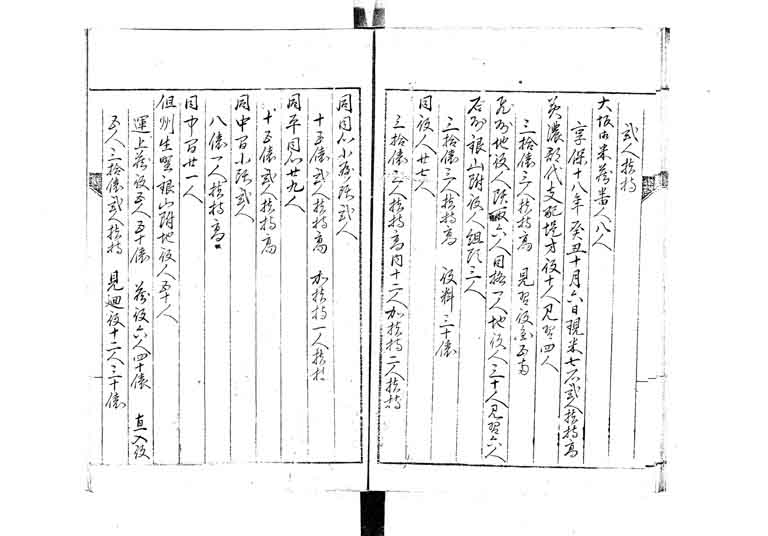 弐人扶持
大坂御米蔵番人八人
享保十八年癸丑十月六日現米七石弐人扶持高
美濃郡代支配堤方役十人見習四人
三拾俵三人扶持高　見習役金五両
地役人 六人目 一人地役人三十人見習六人
石州銀山附役人組頭三人
三拾俵三人扶持高　役料三十俵
同役人廿七人
三拾俵三人扶持高内十二人加扶持二人扶持
同同心小頭弐人
十五俵弐人扶持高　加扶持一人扶持
同平同心廿九人
十五俵弐人扶持高
同中間小頭弐人
八俵一人扶持高
同中間廿一人
但州生野銀山附地役人五十人
運上蔵役五人五十俵　蔵役六人四十俵　直入役
五人三拾俵弐人扶持　見廻役十二人三十俵